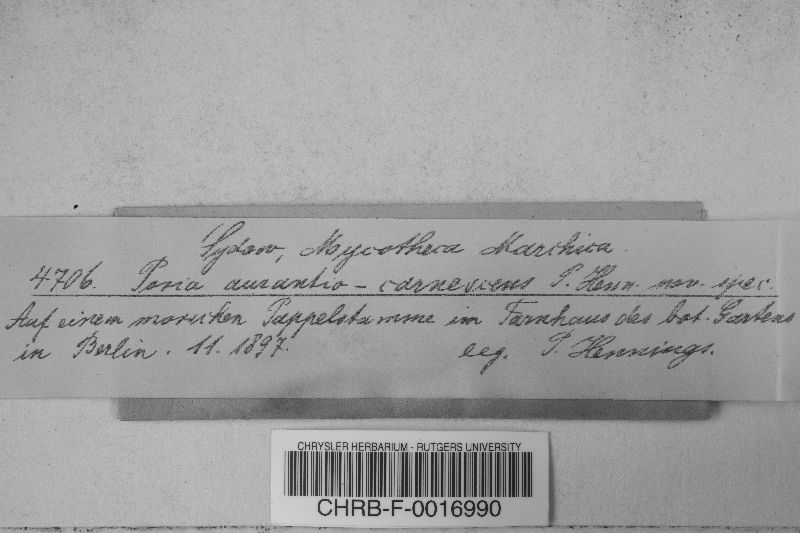 Sydow, Mycotheca Marchica.
4706. Poria aurantio-carnescens P. Henn. nov. spec.
Auf einem morschen Pappelstamme im Farnhaus des bot. Gartens
in Berlin. 11. 1897. leg. P. Hennings.
CHRYSLER HERBARIUM - RUTGERS UNIVERSITY
CHRB-F-0016990